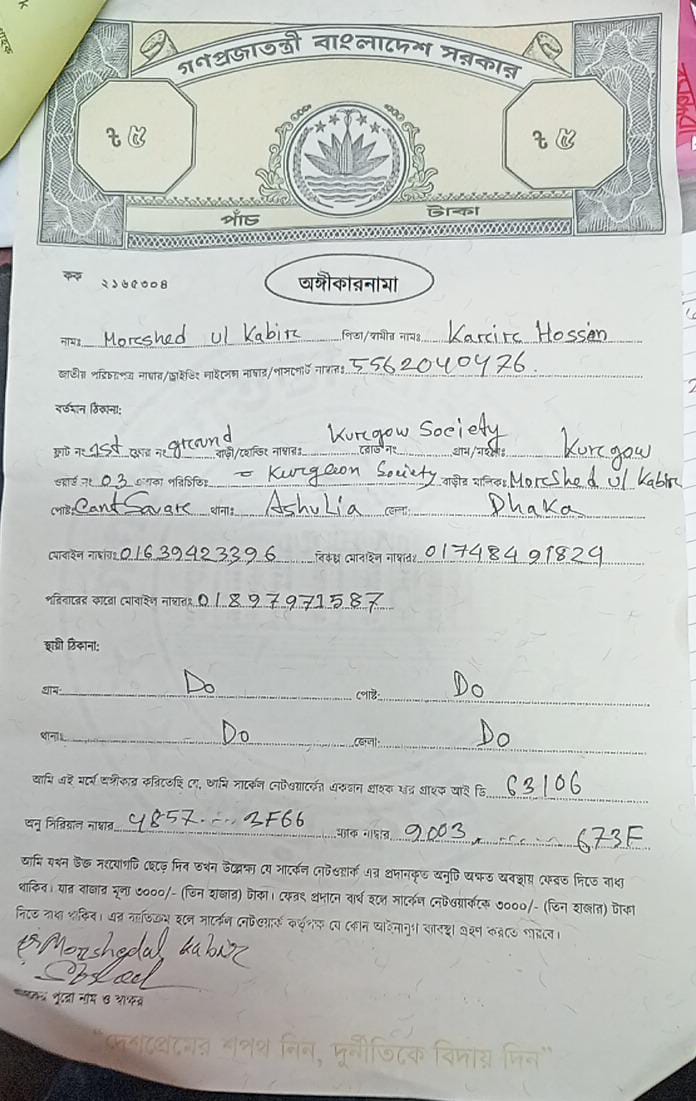 গণপ্রজাতন্ত্রী বাংলাদেশ সরকার
৳ ৫ ৳ ৫
পাঁচ টাকা
কক ২১৬৫৩০৪
অঙ্গীকারনামা
নামঃ Morshed ul Kabir পিতা/স্বামীর নামঃ Karcirc Hossen
জাতীয় পরিচয়পত্র নাম্বার/ড্রাইভিং লাইসেন্স নাম্বার/পাসপোর্ট নাম্বারঃ 5562040476.
বর্তমান ঠিকানা:
ফ্লাট নং 1st ফ্লোর নং ground বাড়ী/হোল্ডিং নাম্বারঃ Kurgow Society রোড নং গ্রাম/মহল্লাঃ Kurgow
ওয়ার্ড নং 03 এলাকা পরিচিতিঃ = Kurgaon Society বাড়ীর মালিকঃ Morshed ul Kabir
পোষ্টঃ Cant Savar থানাঃ Ashulia জেলাঃ Dhaka
মোবাইল নাম্বারঃ 01639423396 বিকল্প মোবাইল নাম্বারঃ 01748491829
পরিবারের কারো মোবাইল নাম্বারঃ 01897971587
স্থায়ী ঠিকানা:
গ্রাম: Do পোষ্ট: Do
থানাঃ Do জেলা: Do
আমি এই মর্মে অঙ্গীকার করিতেছি যে, আমি সার্কেল নেটওয়ার্কের একজন গ্রাহক যার গ্রাহক আই ডি 63106
অনু সিরিয়াল নাম্বার 4857....3F66 ম্যাক নাম্বার 9003......673F
আমি যখন উক্ত সংযোগটি ছেড়ে দিব তখন উল্লেখ্য যে সার্কেল নেটওয়ার্ক এর প্রদানকৃত অনুটি অক্ষত অবস্থায় ফেরত দিতে বাধ্য
থাকিব। যার বাজার মূল্য ৩০০০/- (তিন হাজার) টাকা। ফেরৎ প্রদানে ব্যর্থ হলে সার্কেল নেটওয়ার্ককে ৩০০০/- (তিন হাজার) টাকা
দিতে বাধ্য থাকিব। এর ব্যতিক্রম হলে সার্কেল নেটওয়ার্ক কর্তৃপক্ষ যে কোন আইনানুগ ব্যবস্থা গ্রহণ করতে পারবে।
Morshedul Kabir
পুরো নাম ও স্বাক্ষর
"দেশপ্রেমের শপথ নিন, দুর্নীতিকে বিদায় দিন"